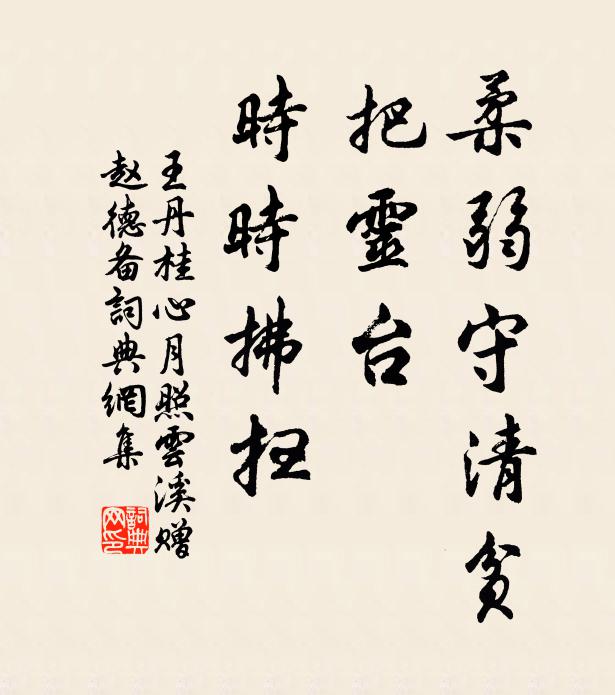 柔弱守清貧
把靈台
時時拂扫
王丹桂心月照雲溪赠
赵德备詞典網集
詞典网印